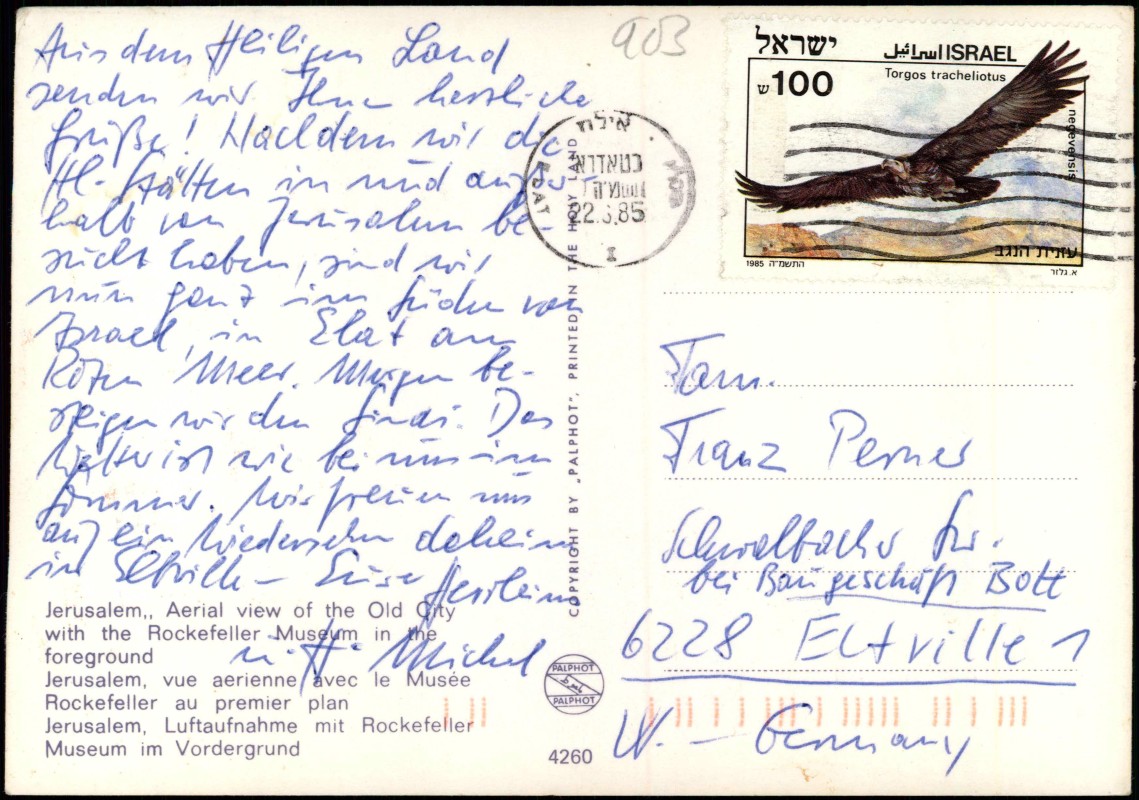 Aus dem Heiligen Land
senden wir Ihnen herzliche
Grüße! Nachdem wir die
Hl. Stätten in und außer-
halb von Jerusalem be-
sucht haben, sind wir
nun ganz im Süden von
Israel, in Elat am
Roten Meer. Morgen be-
steigen wir den Sinai. Das
Wetter ist wie bei uns im
Sommer. Wir freuen uns
auf ein Wiedersehn daheim
in Eltville – Eure
u. H. Michel
Jerusalem,, Aerial view of the Old City
with the Rockefeller Museum in the
foreground
Jerusalem, vue aerienne avec le Musée
Rockefeller au premier plan
Jerusalem, Luftaufnahme mit Rockefeller
Museum im Vordergrund
COPYRIGHT BY „PALPHOT", PRINTED IN THE HOLY LAND
PALPHOT
PALPHOT
4260
903
אילת
ELAT
22. .85
ישראל
اسرائيل ISRAEL
ש 100
Torgos tracheliotus
negevensis
עזנית הנגב
1985 התשמ"ה
א. גלזר
Fam.
Franz Perner
Schwalbacher Str.
bei Baugeschäft Bott
6228 Eltville 1
W. – Germany